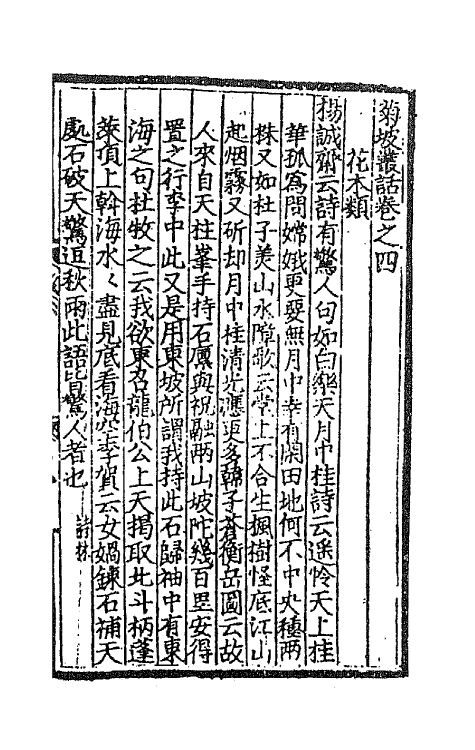 菊坡叢話卷之四
花木類
楊誠齋云詩有驚人句如白樂天月中桂詩云遥怜天上桂
華孤爲問嫦娥更要無月中幸有閑田地何不中央種兩
株又如杜子美山水障歌云堂上不合生楓樹怪底江山
起烟霧又斫却月中桂清光應更多韓子蒼衡岳圖云故
人來自天柱峯手持石廩與祝融兩山坡陀幾百里安得
置之行李中此又是用東坡所謂我持此石歸袖中有東
海之句杜牧之云我欲東召龍伯公上天揭取北斗柄蓬
萊頂上斡海水〻盡見底看海空李賀云女媧鍊石補天
處石破天驚逗秋雨此語皆驚人者也 詩林